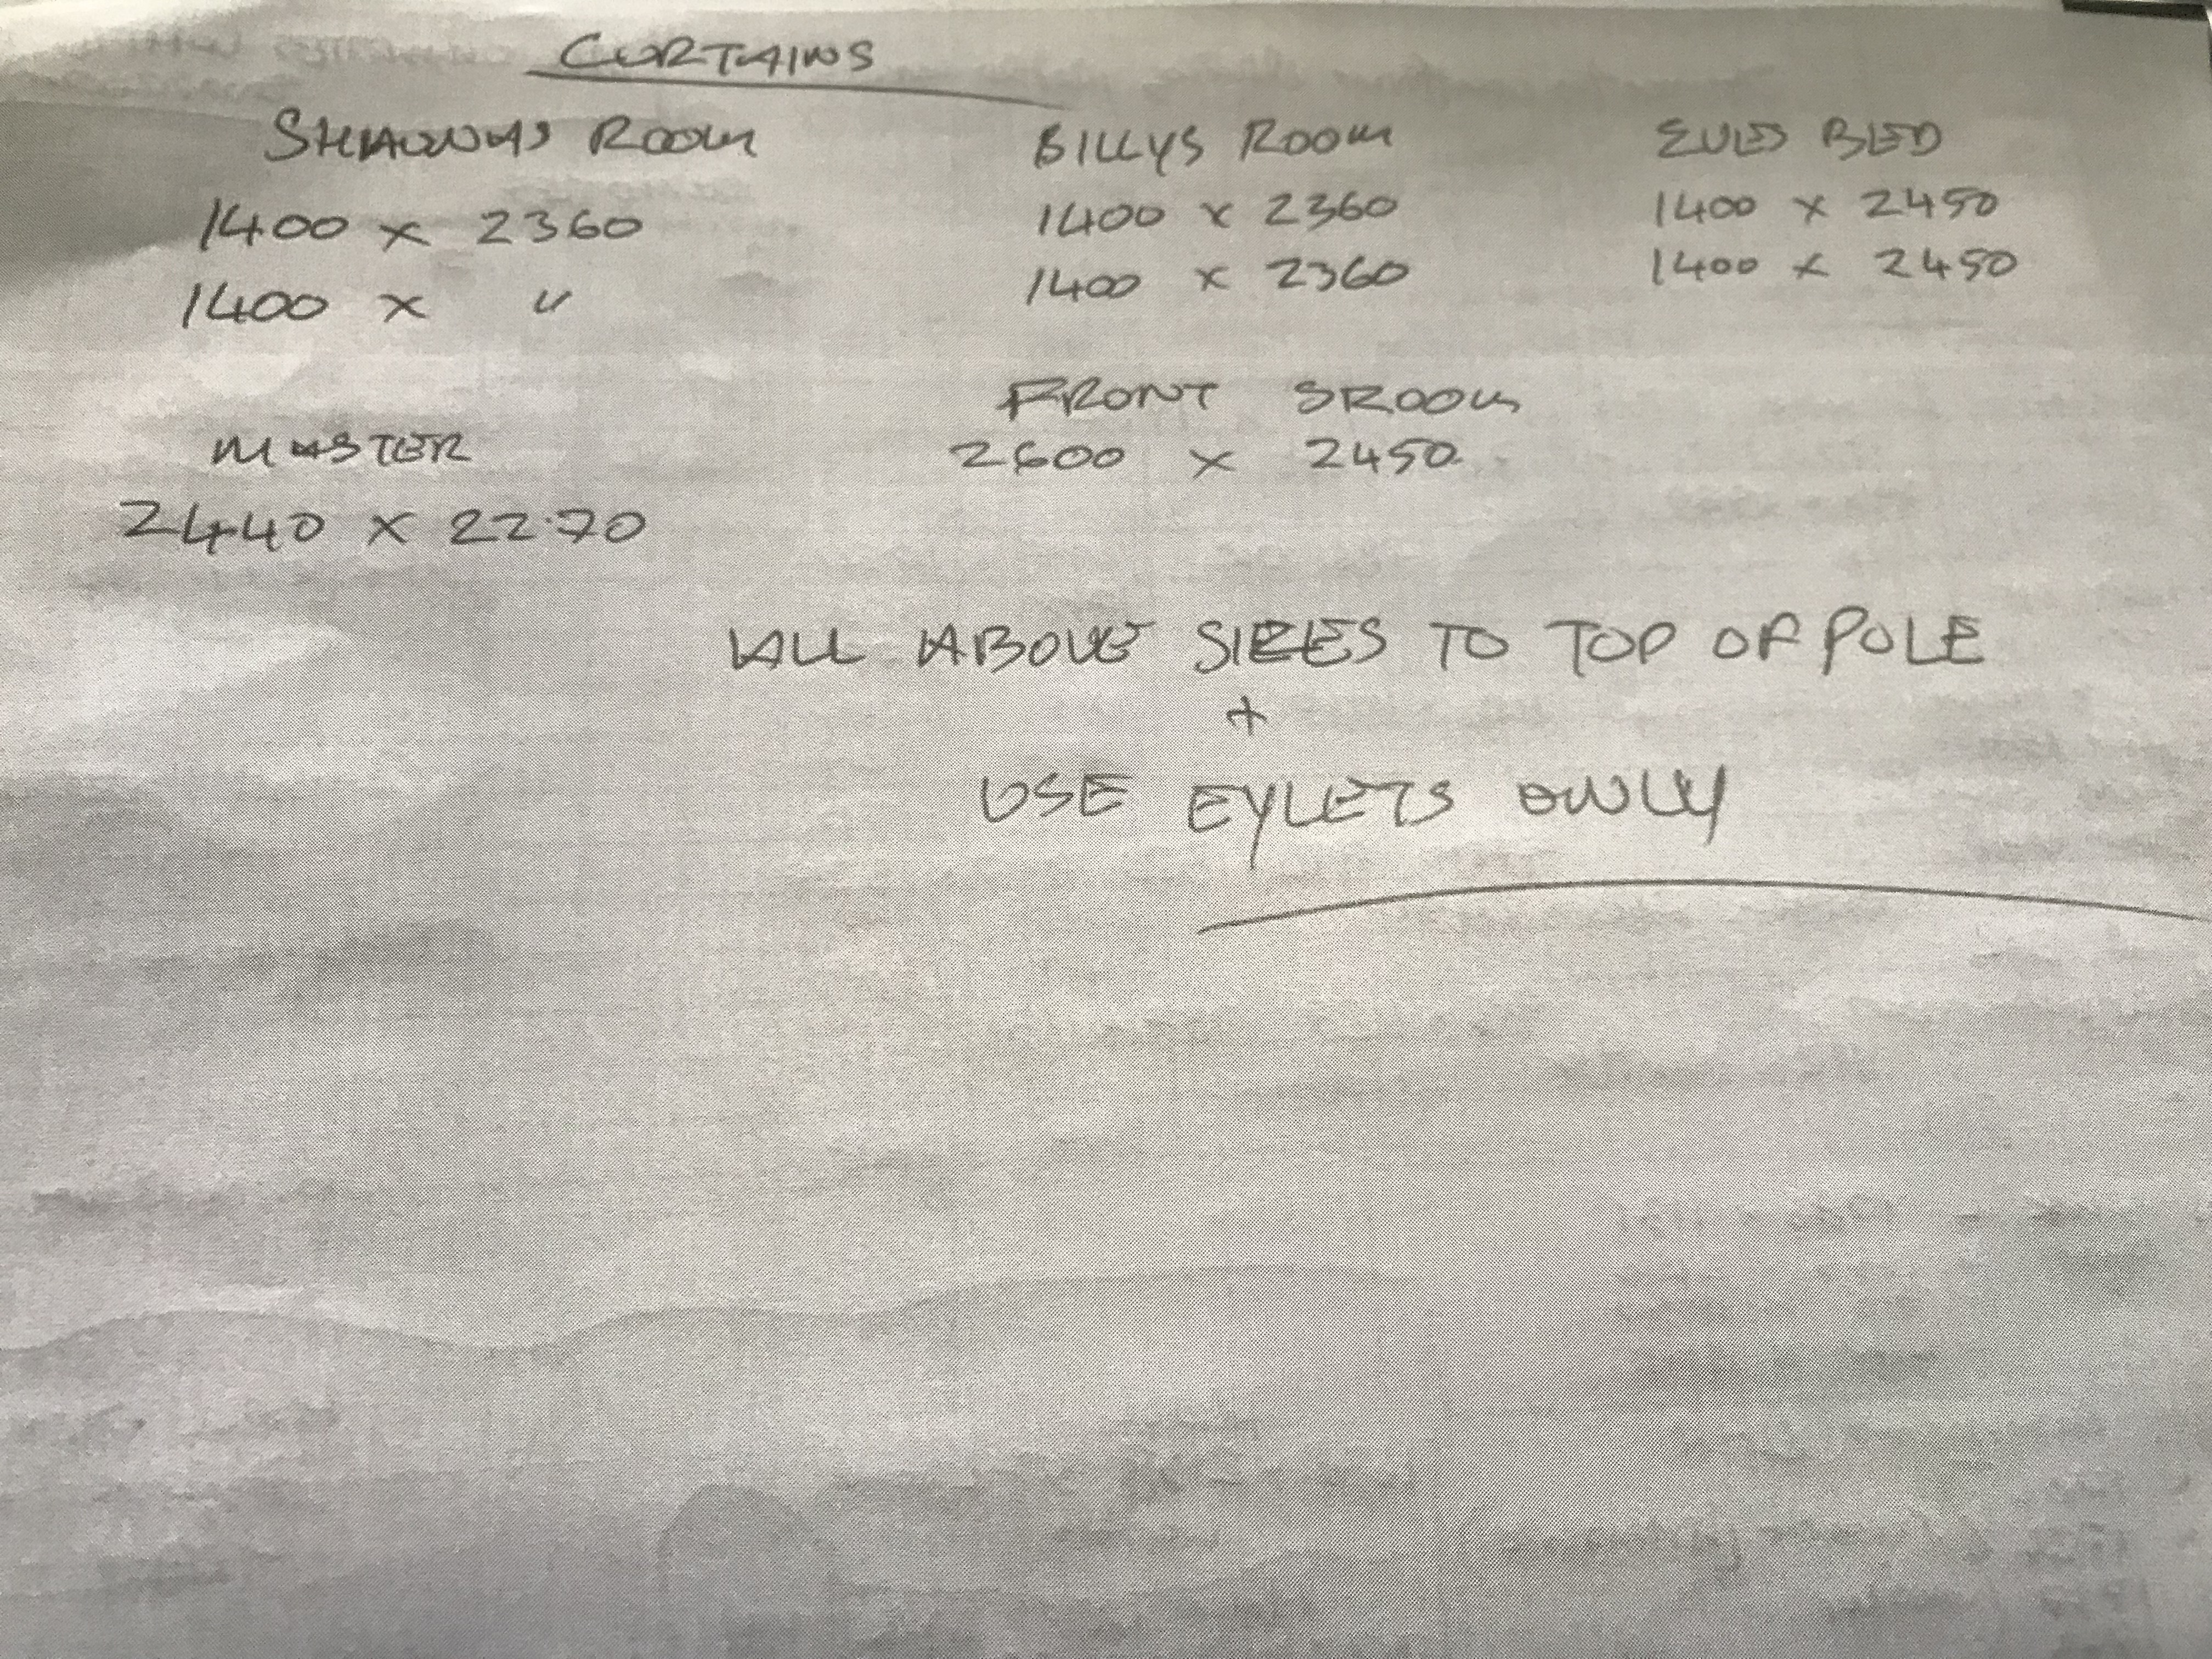 CURTAINS
SHAUNAS ROOM
1400 x 2360
1400 x "
BILLYS ROOM
1400 x 2360
1400 x 2360
EVES BED
1400 x 2450
1400 x 2450
MASTER
2440 x 22.70
FRONT SROOM
2600 x 2450
ALL ABOVE SIZES TO TOP OF POLE
+
USE EYLETS ONLY